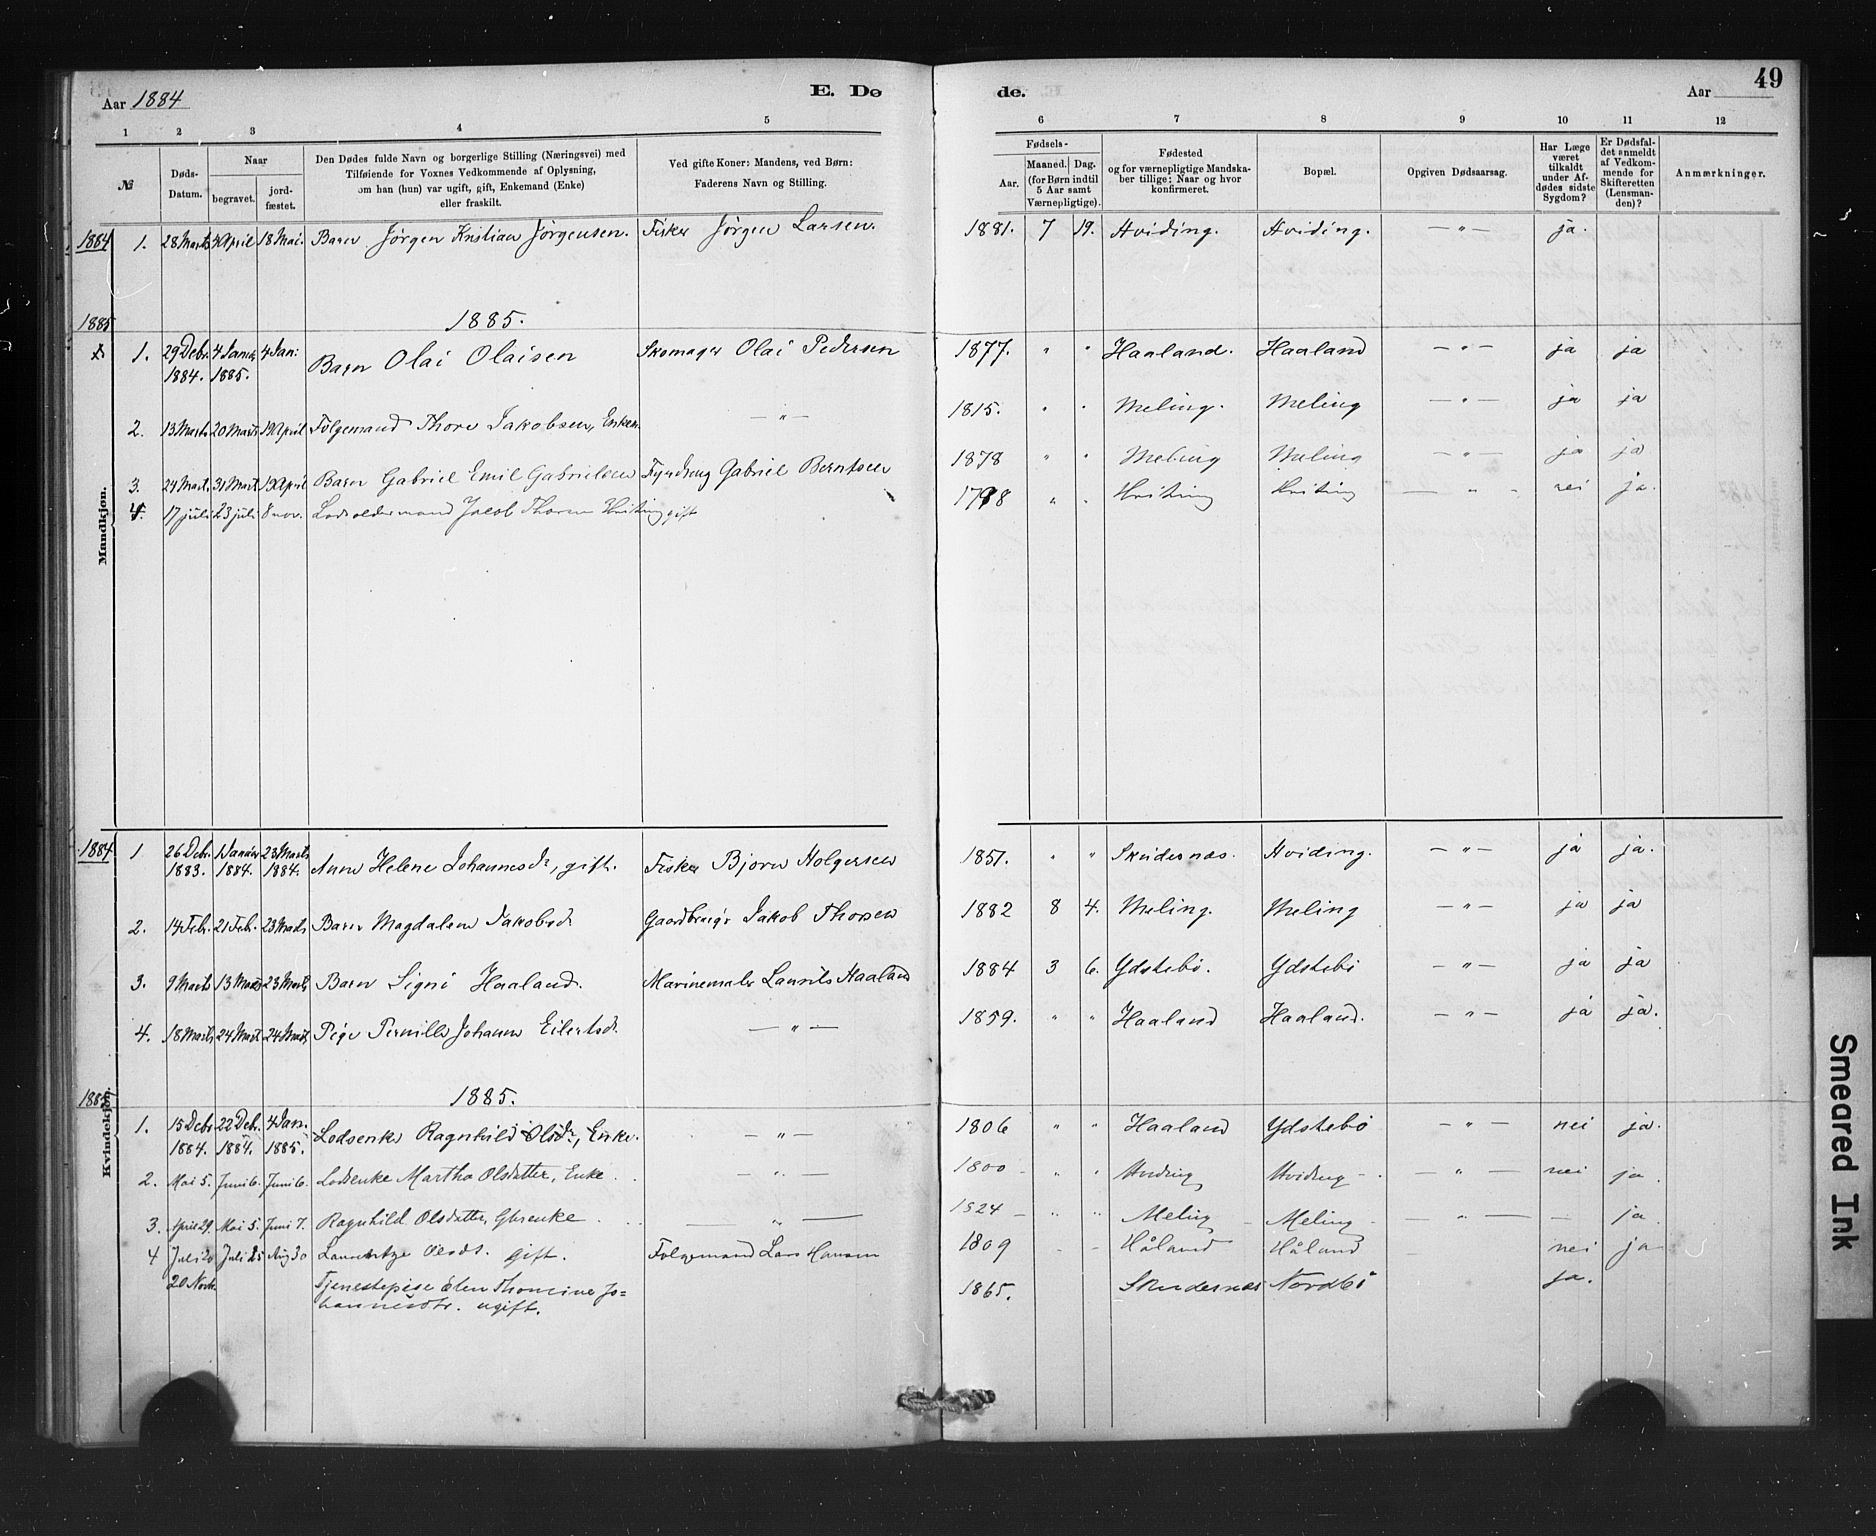 Aar 1884
E. Dø
de.
Aar
49
1 2 3 4 5 6 7 8 9 10 11 12
№
Døds-
Datum.
Naar
begravet.
jord-
fæstet.
Den Dødes fulde Navn og borgerlige Stilling (Næringsvei) med
Tilføiende for Voxnes Vedkommende af Oplysning,
om han (hun) var ugift, gift, Enkemand (Enke)
eller fraskilt.
Ved gifte Koner: Mandens, ved Børn:
Faderens Navn og Stilling.
Fødsels-
Aar.
Maaned. Dag.
(for Børn indtil
5 Aar samt
Værnepligtige).
Fødested
og for værnepligtige Mandska-
ber tillige: Naar og hvor
konfirmeret.
Bopæl.
Opgiven Dødsaarsag.
Har Læge
været
tilkaldt
under Af-
dødes sidste
Sygdom?
Er Dødsfal-
det anmeldt
af Vedkom-
mende for
Skifteretten
(Lensman-
den)?
Anmærkninger.
Mandkjøn.
1884 1. 28 Marts 4 April 18 Mai. Barn Jørgen Kristian Jørgensen. Fisker Jørgen Larsen. 1881. 7 19. Hviding. Hviding. — " — ja.
1885 1885.
1. 29 Debr. 1884. 4 Januar 1885. 4 Jan: Barn Olai Olaisen Skomager Olai Pedersen 1877. " " Haaland. Haaland — " — ja ja
2. 13 Marts 20 Marts 19 April Følgemand Thore Jakobsen, Enkem. — " — 1815. " " Meling. Meling — " — ja ja
3. 24 Mart. 31 Mart. 19 April Barn Gabriel Emil Gabrielsen Gabriel Berntsen 1878 " " Meling Meling — " — ja ja
4. 17 juli 23 juli 8 nov. Lodsoldermand Jacob Thorsen gift 1798 " " — " — nei ja.
Kvindekjøn.
1884 1 26 Debr. 1883. 1 Januar 1884. 23 Marts 1884. Anne Helene Johannesdr, gift. Fisker Bjørn Holgersen 1851. " " Skudesnæs. Hviding. — " — ja ja.
2. 14 Febr. 21 Febr. 23 Marts Barn Magdalene Jakobsd. Gaardbruger Jakob Thorsen 1882 8 4. Meling. Meling — " — ja ja
3. 9 Marts 13 Marts 23 Marts Barn Signi Haaland. Marinemaler Laurits Haaland 1884 3 6. Ydstebø. Ydstebø — " — ja ja
4. 18 Marts 24 Marts 24 Marts Pige Pernille Johanne Eilertsd. — " — 1859. " " Haaland Haaland. — " — ja ja.
1885 1885.
1. 15 Debr 1884. 22 Debr. 1884. 4 Jan. 1885. Lodsenke Ragnhild Olsdr, Enke. — " — 1806 " " Haaland Ydstebø — " — nei ja.
2. Mai 5. Juni 6. Juni 6. Lodsenke Martha Olsdatter, Enke — " — 1800 " " Hviding Hviding — " — nei ja.
3. April 29. Mai 5. Juni 7. Ragnhild Olsdatter, Gbrenke — " — 1824 " " Meling Meling — " — — ja.
4 Juli 20 Juli 25 Aug 30 Olsdt. gift. Følgemand Lars Hansen 1809 Håland Håland nei ja
20 Novb. Tjenestepige Elen Thomine Jo=
hannesdtr. ugift. 1865. Skudesnæs Nordbø ja.
Smeared Ink